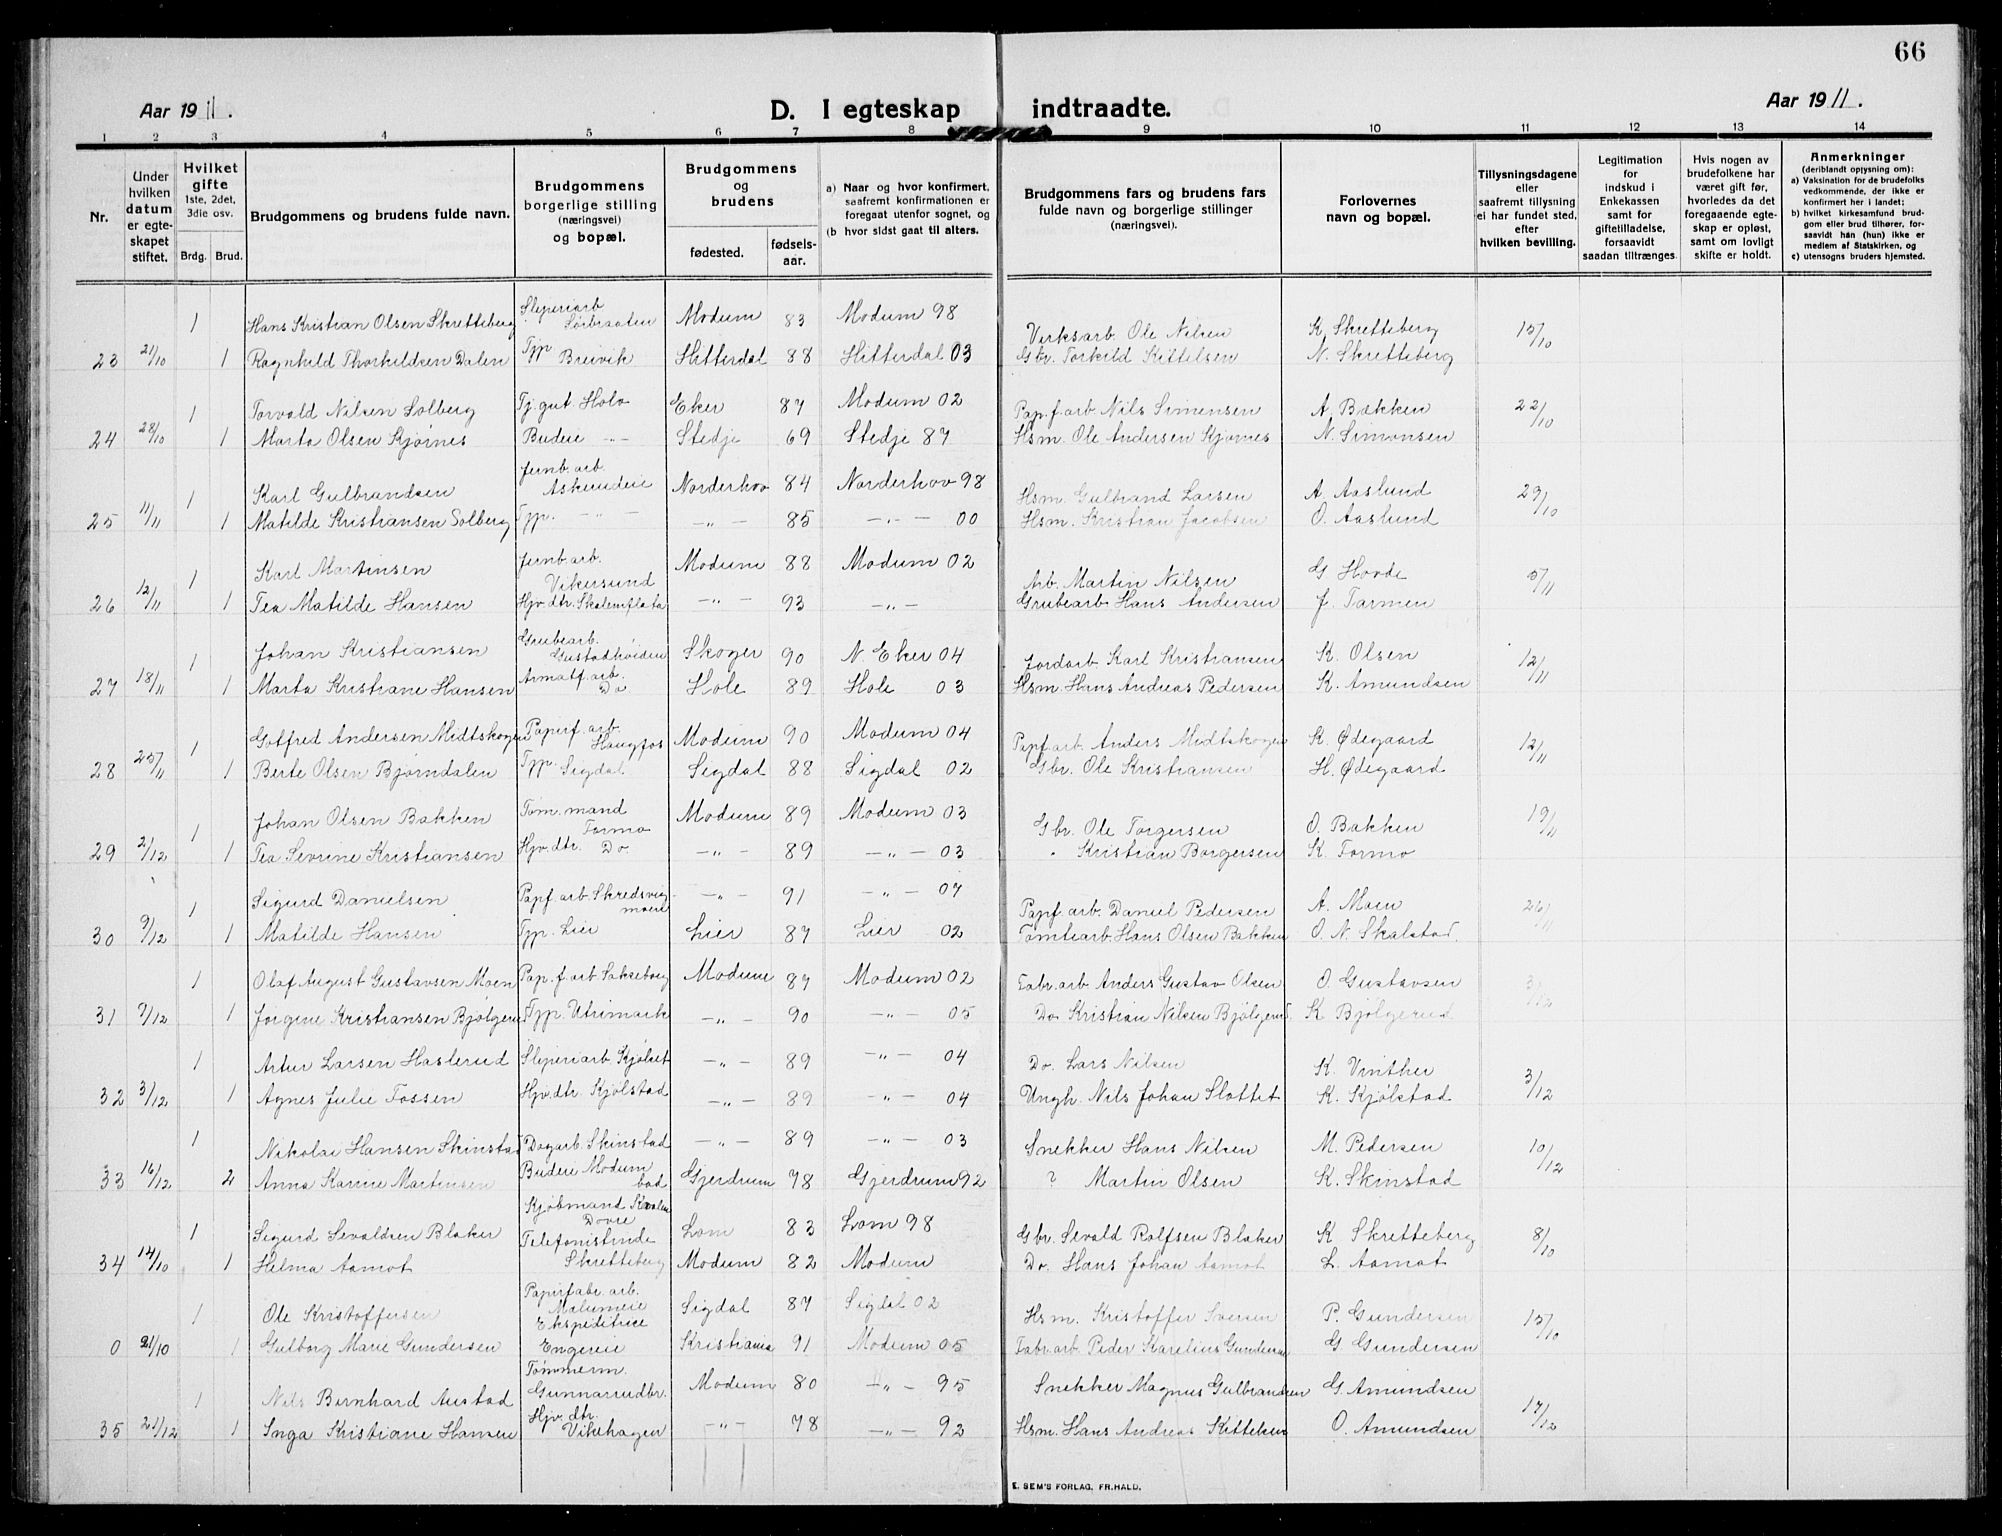 66
Aar 1911.
D. I egteskap indtraadte.
Aar 1911.
1 2 3 4 5 6 7 8 9 10 11 12 13 14
Nr.
Under hvilken datum er egte-skapet stiftet.
Hvilket gifte 1ste, 2det, 3die osv.
Brdg. Brud.
Brudgommens og brudens fulde navn.
Brudgommens borgerlige stilling (næringsvei) og bopæl.
Brudgommens og brudens
fødested. fødsels-aar.
a) Naar og hvor konfirmert, saafremt konfirmationen er foregaat utenfor sognet, og
(b hvor sidst gaat til alters.
Brudgommens fars og brudens fars fulde navn og borgerlige stillinger (næringsvei).
Forlovernes navn og bopæl.
Tillysningsdagene eller saafremt tillysning ei har fundet sted, efter hvilken bevilling.
Legitimation for indskud i Enkekassen samt for giftetilladelse, forsaavidt saadan tiltrænges.
Hvis nogen av brudefolkene har været gift før, hvorledes da det foregaaende egte-skap er opløst, samt om lovligt skifte er holdt.
Anmerkninger (deriblandt opysning om):
a) Vaksination for de brudefolks vedkommende, der ikke er konfirmert her i landet;
b) hvilket kirkesamfund brud-gom eller brud tilhører, for-saavidt han (hun) ikke er medlem af Statskirken, og
c) utensogns bruders hjemsted.
1 Hans Kristian Olsen Skretteberg Sliperiarb Sørbraaten Modum 83 Modum 98 Verksarb. Ole Nilsen K. Skretteberg 15/10
23 21/10 1 Ragnhild Thorkildsen Dalen Tjp Breivik Hitterdal 88 Hitterdal 03 Gbr. Torkild Kittelsen N. Skretteberg
1 Torvald Nilsen Solberg Tj. gut Hole Eker 87 Modum 02 Pap.f.arb Nils Simensen A. Bækken 22/10
24 28/10 1 Marta Olsen Kjørnes Budeie -"- Stedje 69 Stedje 87 Hsm. Ole Andersen Kjørnes N. Simonsen
1 Karl Gulbrandsen Jernb. arb. Askeudeie Norderhov 84 Norderhov 98 Hsm. Gulbrand Larsen A. Aaslund 29/10
25 11/11 1 Matilde Kristiansen Solberg Tjp. - - -"- 85 -"- 00 Hsm. Kristian Jacobsen O. Aaslund
1 Karl Martinsen Jernb. arb. Vikersund Modum 88 Modum 02 Arb. Martin Nilsen G Hovde 5/11
26 12/11 1 Tea Matilde Hansen Hjv. dtr. Skalemflata -"- 93 -"- Grubearb Hans Andersen J. Tarmen
1 Johan Kristiansen Grubearb. Gustadhøiden Skoger 90 N. Eker 04 Jordarb Karl Kristiansen K. Olsen 12/11
27 18/11 1 Marta Kristiane Hansen Armatf. arb. Do Hole 89 Hole 03 Hsm. Hans Andreas Pedersen K. Amundsen
1 Gotfred Andersen Midtskogen Papirf. arb. Haugfos Modum 90 Modum 04 Papf. arb. Anders Midtskogen K. Ødegaard 12/11
28 25/11 1 Berte Olsen Bjørndalen Tjp. Sigdal Sigdal 88 Sigdal 02 Gbr. Ole Kristiansen H. Ødegaard
1 Johan Olsen Bakken Tøm. mand Formo Modum 89 Modum 03 Gbr. Ole Torgersen O. Bakken 19/11
29 2/12 1 Tea Sevrine Kristiansen Hjv. dtr. Do -"- 89 -"- 03 " Kristian Borgersen K. Formo
1 Sigurd Danielsen Papf. arb. Skredsvig moen -"- 91 -"- 07 Papf. arb. Daniel Pedersen A. Moen 26/11
30 9/12 1 Matilde Hansen Tjp. Lier Lier 87 Lier 02 Tomtearb. Hans Olsen Bakken O. N. Skalstad.
1 Olaf August Gustavsen Moen Pap. f. arb Sakseborg Modum 87 Modum 02 Fabr. arb Anders Gustav Olsen O. Gustavsen 3/12
31 9/12 1 Jorgine Kristiansen Bjølgerud Tjp. Utrimark -"- 90 -"- 05 Do Kristian Nilsen Bjølgerud K Bjølgerud
1 Artur Larsen Haslerud Sliperiarb Kjølset -"- 89 -"- 04 Do. Lars Nilsen K. Vinther 3/12
32 3/12 1 Agnes Julie Fossen Hjv. dtr. Kjølstad -"- 89 -"- 04 Ungk. Nils Johan Slottet K. Kjølstad
1 Nikolai Hansen Skinstad Dagarb. Skinstad -"- 89 -"- 03 Snekker Hans Nilsen M. Pedersen 10/12
33 16/12 2 Anna Karine Martinsen Budeie Modum bad Gjerdrum 78 Gjerdrum 92 ? Martin Olsen K. Skinstad
1 Sigurd Sevaldsen Blaker Kjøbmand Dovre Lom 83 Lom 98 Gbr. Sevald Rolfsen Blaker K Skretteberg 8/10
34 14/10 1 Helma Aamot Telefonistinde Skretteberg Modum 82 Modum Do. Hans Johan Aamot L. Aamot
1 Ole Kristoffersen Papirfabr. arb. Malumeie Sigdal 87 Sigdal 02 Hsm. Kristoffer Iversen P. Gundersen 15/10
0 21/10 1 Gulborg Marie Gundersen Ekspeditrice Engereie Kristiania 91 Modum 05 Fabr. arb. Peder Karelius Gundersen G. Gundersen
1 Nils Bernhard Austad Tømmerm. Gunnarrudbr. Modum 80 -"- 95 Snekker Magnus Gulbrandsen G. Amundsen 17/12
35 21/12 1 Inga Kristiane Hansen Hjv. dtr. Vikehagen -"- 78 -"- 92 Hsm. Hans Andreas Kittelsen O. Amundsen
E. SEM'S FORLAG, FR.HALD.